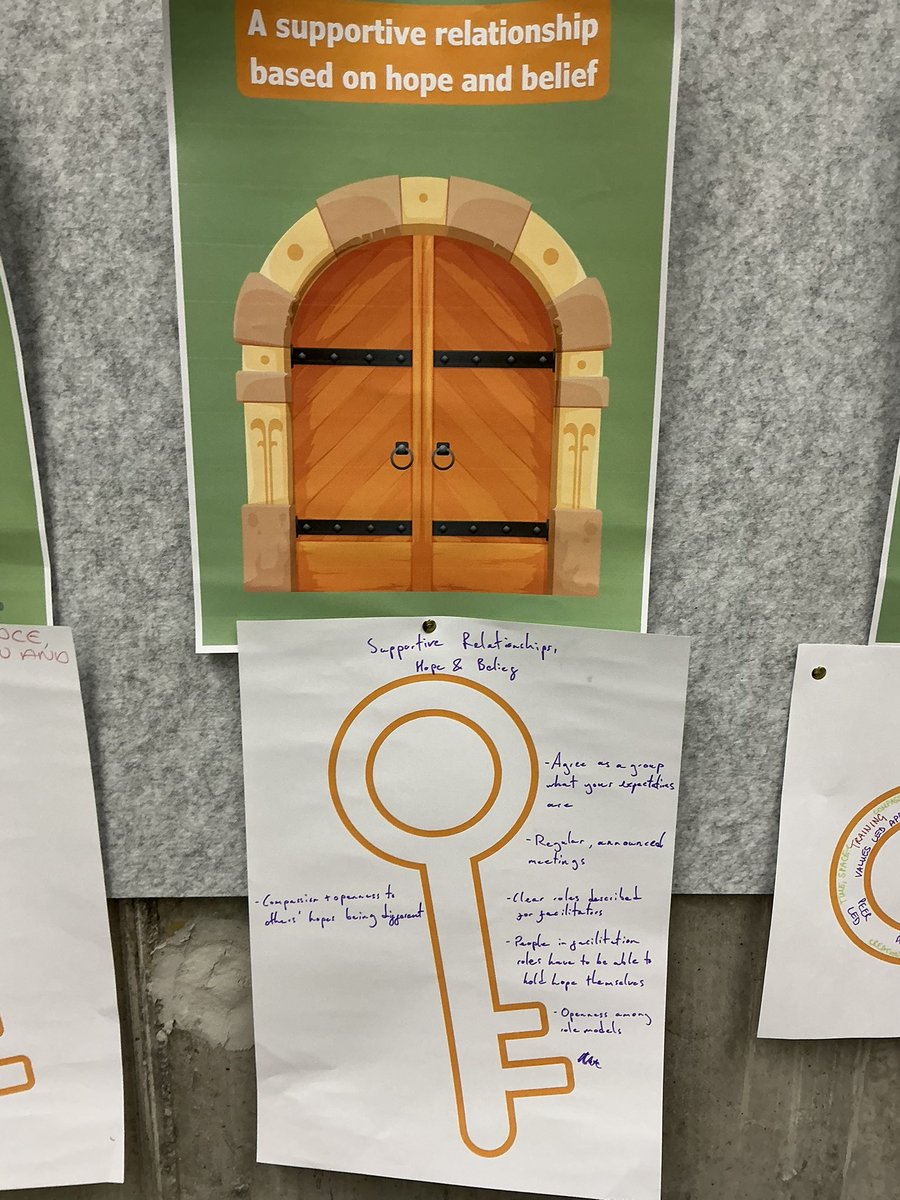 A supportive relationship
based on hope and belief
Supportive Relationships,
Hope & Belief
-Agree as a group
what your expectations
are
-Regular, announced
meetings
-Clear roles described
for facilitators
-People in facilitation
roles have to be able to
hold hope themselves
-Openness among
role models
-Compassion + openness to
others' hopes being different
AND
TIME, SPACE
TRAINING
VALUES LED
PEER
LED